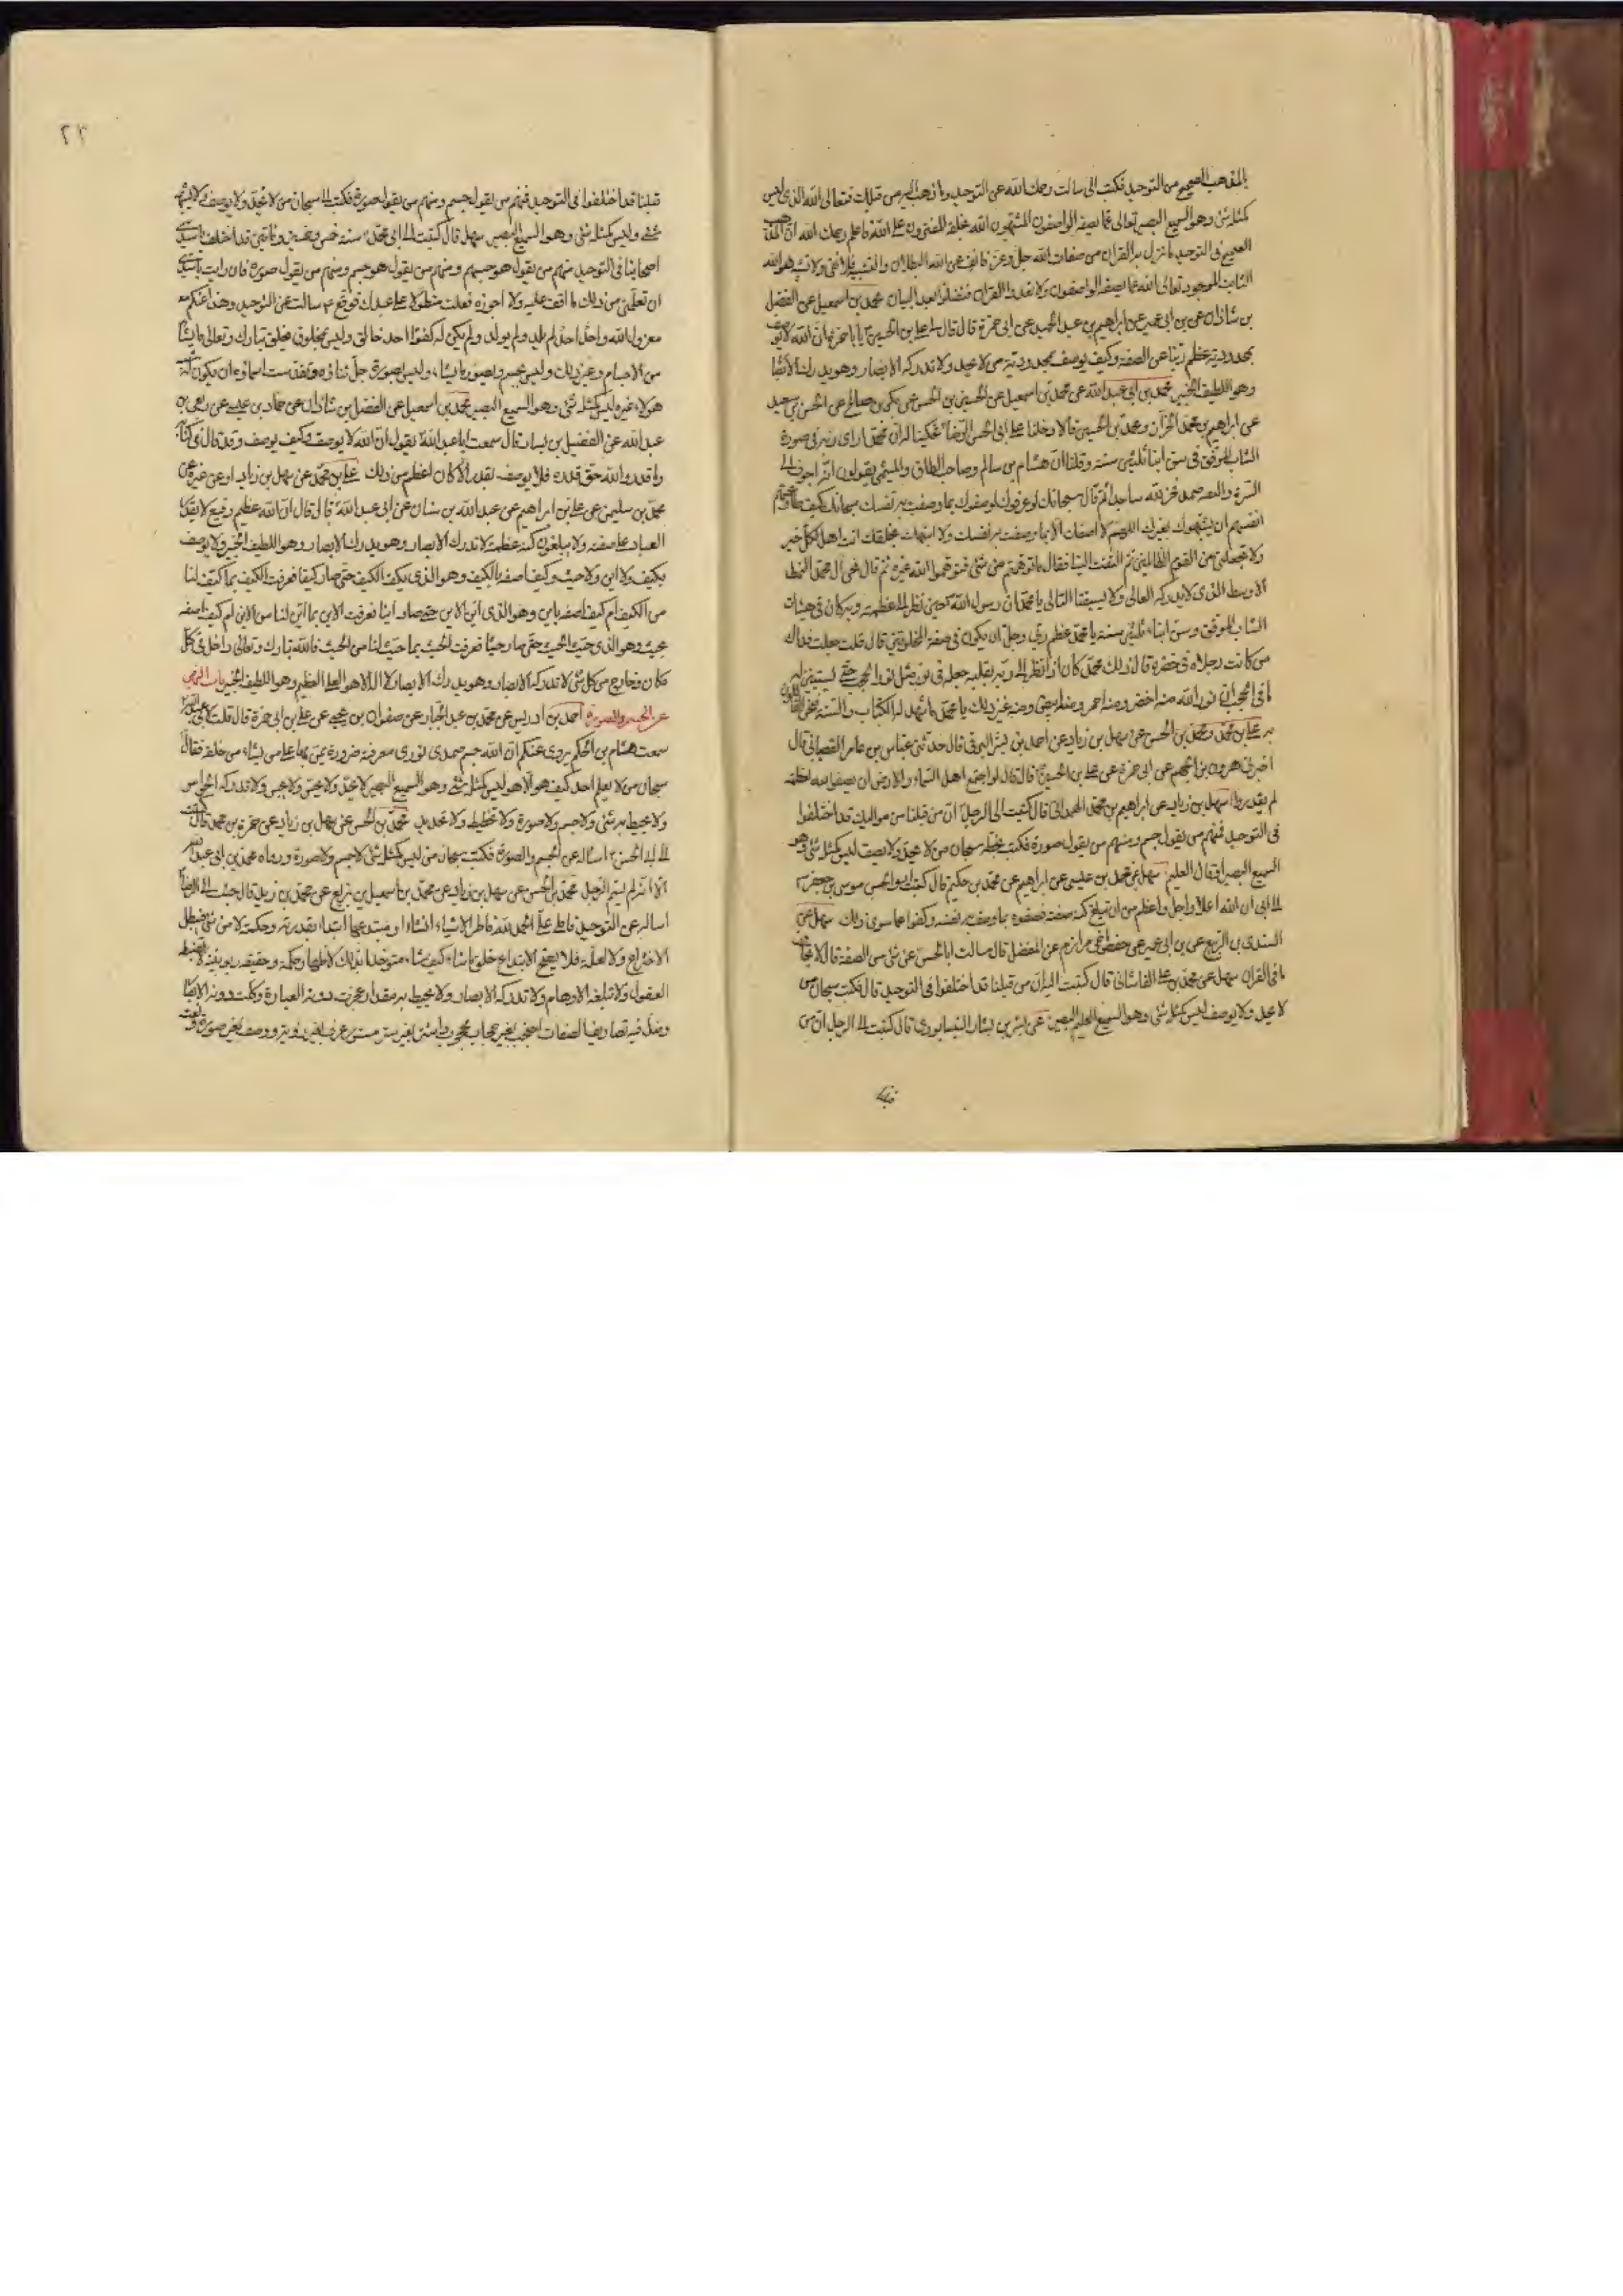 بالمذهب الصحيح من التوحيد فكتب الى سالت رحمك الله عن التوحيد وما ذهب اليه من قبلك فتعالى الله الذى ليس
كمثله شئ وهو السميع البصير تعالى عما يصفه الواصفون المشبهون الله بخلقه المفترون على الله فاعلم رحمك الله ان المذهب
الصحيح فى التوحيد ما نزل به القران من صفات الله جل وعز فانف عن الله البطلان والتشبيه فلا نفى ولا تشبيه هو الله
الثابت الموجود تعالى الله عما يصفه الواصفون ولا تعدوا القران فتضلوا بعد البيان محمد بن اسمعيل عن الفضل
بن شاذان عن بن ابى عمير عن ابراهيم بن عبد الحميد عن ابى حمزة قال قال لى على بن الحسين يا با حمزة ان الله لا يوصف
بمحدودية عظم ربنا عن الصفة وكيف يوصف بمحدودية من لا يحد ولا تدركه الابصار وهو يدرك الابصار
وهو اللطيف الخبير محمد بن ابى عبد الله عن محمد بن اسمعيل عن الحسين بن الحسن عن بكر بن صالح عن الحسن بن سعيد
عن ابراهيم بن محمد الخزاز ومحمد بن الحسين قالا دخلنا على ابى الحسن الرضا فحكينا له ان محمدا راى ربه فى صورة
الشاب الموفق فى سن ابنا ثلثين سنة وقلنا ان هشام بن سالم وصاحب الطاق والميثمى يقولون انه اجوف الى
السرة والبقية صمد فخر لله ساجدا ثم قال سبحانك لو عرفوك لوصفوك بما وصفت به نفسك سبحانك كيف طاوعتهم
انفسهم ان يشبهوك بغيرك اللهم لا اصفك الا بما وصفت به نفسك ولا اشبهك بخلقك انت اهل لكل خير
ولا تجعلنى من القوم الظالمين ثم التفت الينا فقال ما توهمتم من شئ فتوهموا الله غيره ثم قال نحن ال محمد النمط
الاوسط الذى لا يدركه الغالى ولا يسبقنا التالى يا محمد ان رسول الله حين نظر الى عظمة ربه كان فى هيئات
الشاب الموفق وسن ابناء ثلثين سنة يا محمد عظم ربى وجل ان يكون فى صفة المخلوقين قال قلت جعلت فداك
من كانت رجلاه فى خضرة قال ذلك محمد كان اذا نظر الى ربه بقلبه جعله فى نور مثل نور الحجب حتى يستبين له
ما فى الحجب ان نور الله منه اخضر ومنه احمر ومنه ابيض ومنه غير ذلك يا محمد ما شهد له الكتاب والسنة فنحن القائلون
به على بن محمد ومحمد بن الحسن عن سهل بن زياد عن احمد بن بشر البرقى قال حدثنى عباس بن عامر القصبانى قال
اخبرنى هرون بن الجهم عن ابى حمزة عن على بن الحسين قال قال لو اجتمع اهل السماء والارض ان يصفوا الله بعظمته
لم يقدروا سهل بن زياد عن ابراهيم بن محمد الهمدانى قال كتبت الى الرجل ان من قبلنا من مواليك قد اختلفوا
فى التوحيد فمنهم من يقول جسم ومنهم من يقول صورة فكتب بخطه سبحان من لا يحد ولا يوصف ليس كمثله شئ وهو
السميع البصير او قال العليم سهل عن محمد بن عيسى عن ابراهيم عن محمد بن حكيم قال كتب ابو الحسن موسى بن جعفر
الى ابى ان الله اعلا واجل واعظم من ان تبلغ كنه صفته فصفوه بما وصف به نفسه وكفوا عما سوى ذلك سهل عن
السندى بن الربيع عن بن ابى عمير عن حفص اخى مرازم عن المفضل قال سالت ابا الحسن عن شئ من الصفة قال لا تجاوز
ما فى القران سهل عن محمد بن على القاسانى قال كتبت اليه ان من قبلنا قد اختلفوا فى التوحيد قال فكتب سبحان من
لا يحد ولا يوصف ليس كمثله شئ وهو السميع العليم البصير عن بشر بن بشار النيسابورى قال كتبت الى الرجل ان من
قبلنا
٢٢
قبلنا قد اختلفوا فى التوحيد فمنهم من يقول جسم ومنهم من يقول صورة فكتب الى سبحان من لا يحد ولا يوصف ولا يشبهه
شئ وليس كمثله شئ وهو السميع البصير سهل قال كتبت الى ابى محمد سنة خمس وخمسين ومائتين قد اختلف يا سيدى
اصحابنا فى التوحيد منهم من يقول هو جسم ومنهم من يقول هو صورة فان رايت يا سيدى
ان تعلمنى من ذلك ما اقف عليه ولا اجوزه فعلت متطولا على عبدك فوقع سالت عن التوحيد وهذا عنكم
معزول الله واحد احد لم يلد ولم يولد ولم يكن له كفوا احد خالق وليس بمخلوق يخلق تبارك وتعالى ما يشا
من الاجسام وغير ذلك وليس بجسم ويصور ما يشاء وليس بصورة جل ثناؤه وتقدست اسماؤه ان يكون له شبه
هو لا غيره ليس كمثله شئ وهو السميع البصير محمد بن اسمعيل عن الفضل بن شاذان عن حماد بن عيسى عن ربعى بن
عبد الله عن الفضيل بن يسار قال سمعت ابا عبد الله يقول ان الله لا يوصف وكيف يوصف وقد قال فى كتابه
وما قدروا الله حق قدره فلا يوصف بقدر الا كان اعظم من ذلك على بن محمد عن سهل بن زياد او عن غيره عن
محمد بن سليمن عن على بن ابراهيم عن عبد الله بن سنان عن ابى عبد الله قال قال ان الله عظيم رفيع لا يقدر
العباد على صفته ولا يبلغون كنه عظمته لا تدركه الابصار وهو يدرك الابصار وهو اللطيف الخبير ولا يوصف
بكيف ولا اين ولا حيث وكيف اصفه بالكيف وهو الذى كيف الكيف حتى صار كيفا فعرفت الكيف بما كيف لنا
من الكيف ام كيف اصفه باين وهو الذى اين الاين حتى صار اينا فعرفت الاين بما اين لنا من الاين ام كيف اصفه
بحيث وهو الذى حيث الحيث حتى صار حيثا فعرفت الحيث بما حيث لنا من الحيث فالله تبارك وتعالى داخل فى كل
مكان وخارج من كل شئ لا تدركه الابصار وهو يدرك الابصار لا اله الا هو العلى العظيم وهو اللطيف الخبير باب النهى
عن الجسم والصورة احمد بن ادريس عن محمد بن عبد الجبار عن صفوان بن يحيى عن على بن ابى حمزة قال قلت لابى عبد الله
سمعت هشام بن الحكم يروى عنكم ان الله جسم صمدى نورى معرفته ضرورة يمن بها على من يشاء من خلقه فقال
سبحان من لا يعلم احد كيف هو الا هو ليس كمثله شئ وهو السميع البصير لا يحد ولا يحس ولا يجس ولا تدركه الحواس
ولا يحيط به شئ ولا جسم ولا صورة ولا تخطيط ولا تحديد محمد بن الحسن عن سهل بن زياد عن حمزة بن محمد قال كتبت
الى ابى الحسن اساله عن الجسم والصورة فكتب سبحان من ليس كمثله شئ لا جسم ولا صورة ورواه محمد بن ابى عبد الله
الا انه لم يسم الرجل محمد بن الحسن عن سهل بن زياد عن محمد بن اسمعيل بن بزيع عن محمد بن زيد قال جئت الى الرضا
اساله عن التوحيد فاملى على الحمد لله فاطر الاشياء انشاء ومبتدعها ابتداعا بقدرته وحكمته لا من شئ فيبطل
الاختراع ولا لعلة فلا يصح الابتداع خلق ما شاء كيف شاء متوحدا بذلك لاظهار حكمته وحقيقة ربوبيته لا تضبطه
العقول ولا تبلغه الاوهام ولا تدركه الابصار ولا يحيط به مقدار عجزت دونه العبارة وكلت دونه الابصار
وضل فيه تصاريف الصفات احتجب بغير حجاب محجوب واستتر بغير ستر مستور عرف بغير رؤية ووصف بغير صورة ونعت